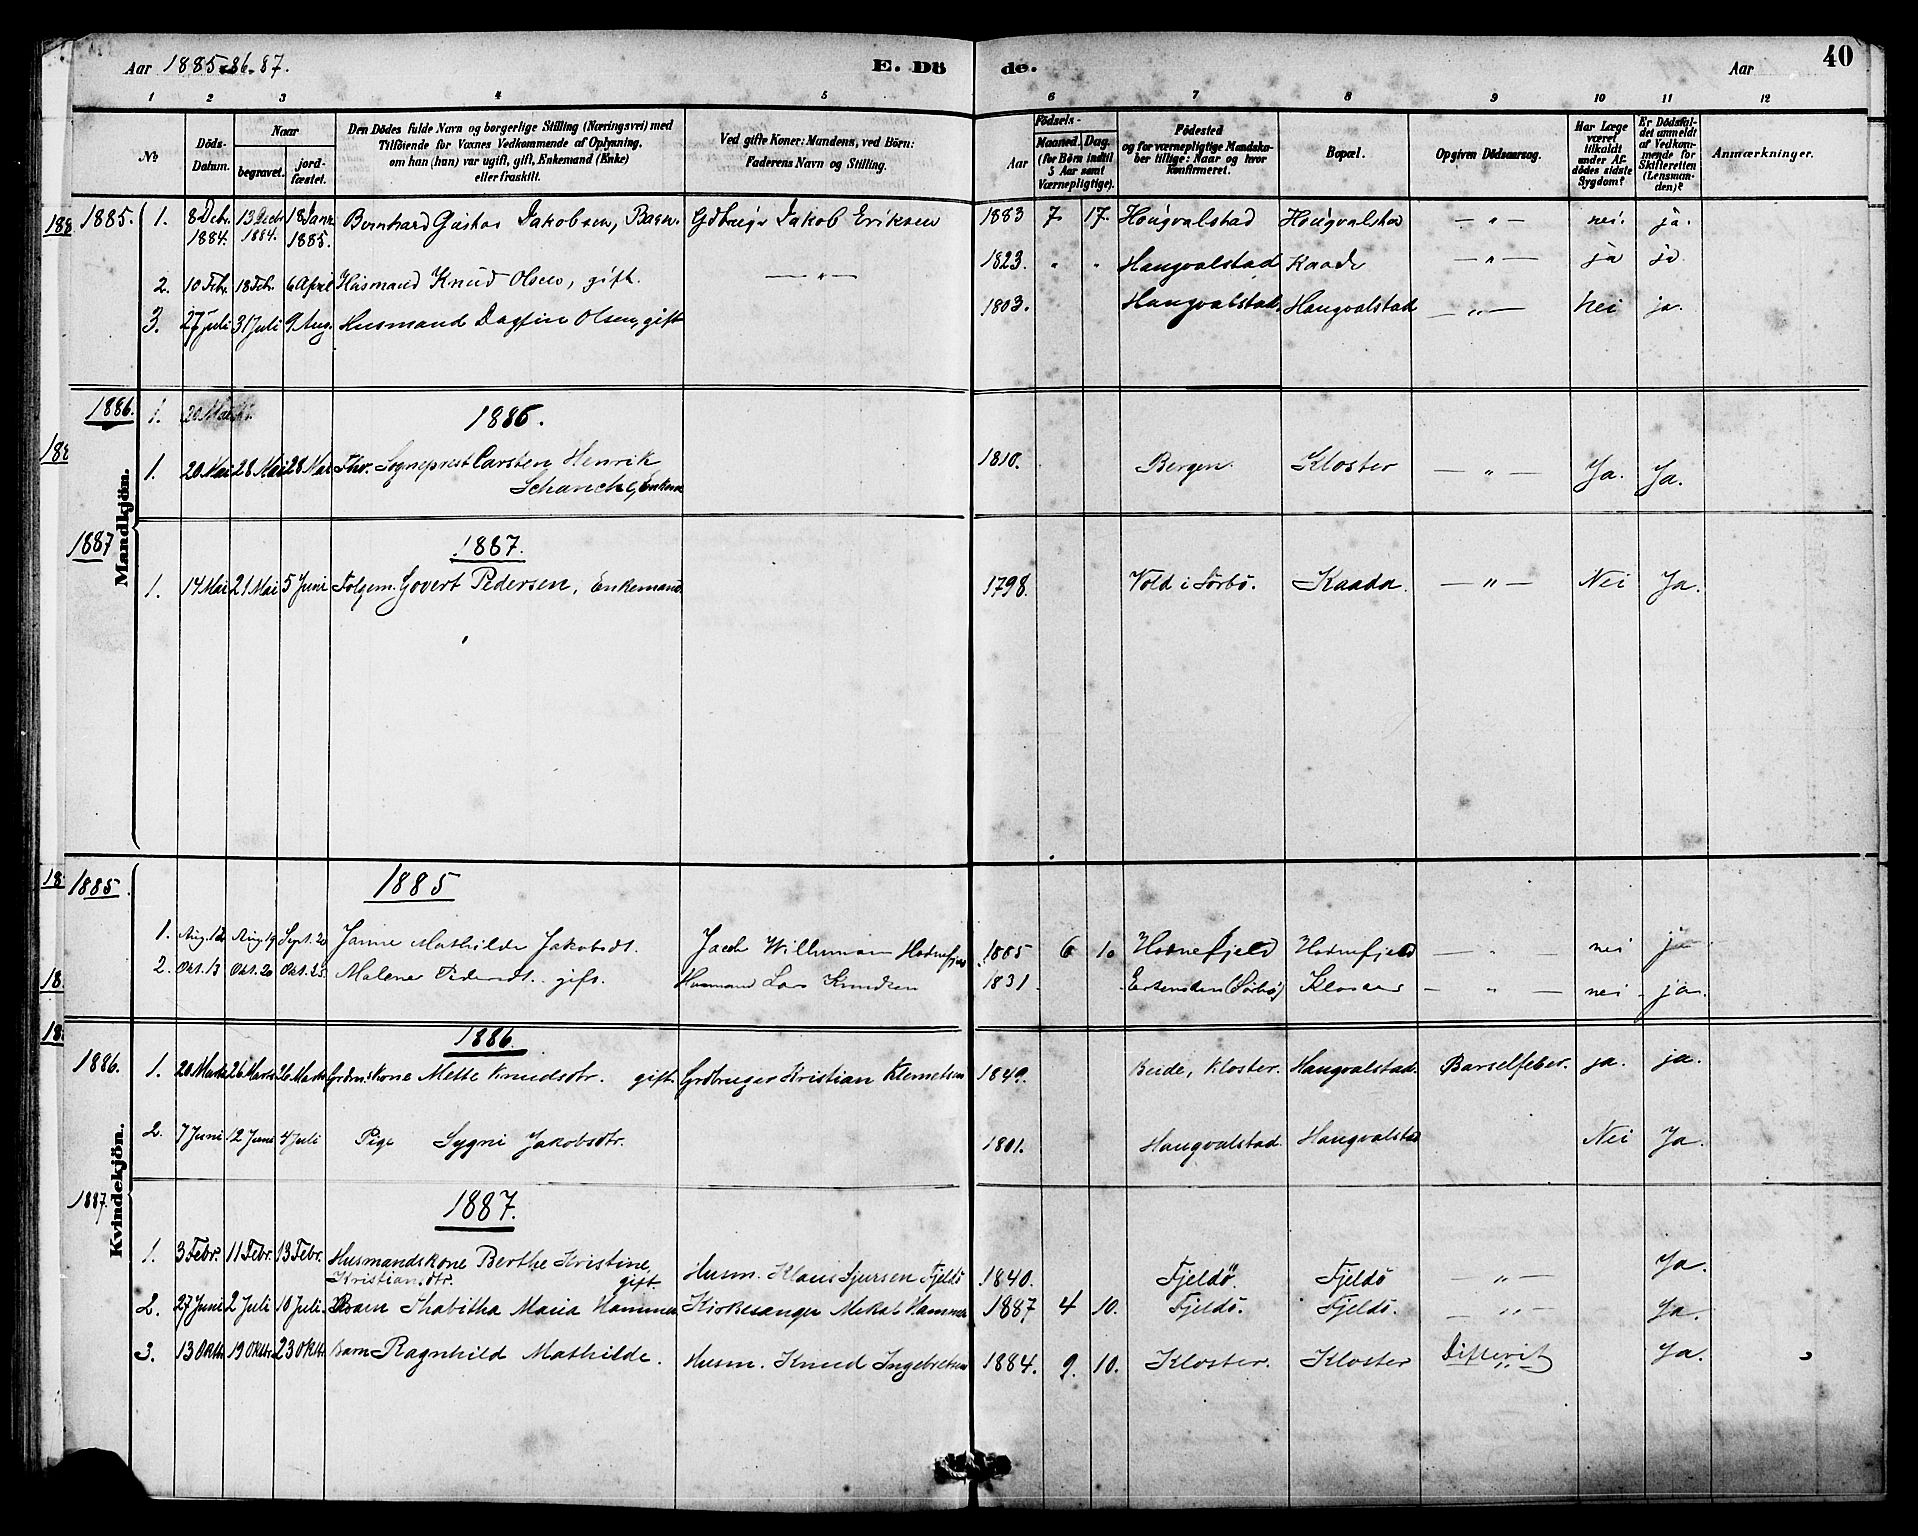 Aar 1885-86-87.
E. Dö
de.
Aar
40
1 2 3 4 5 6 7 8 9 10 11 12
No
Döds-Datum.
Naar
begravet.
jord-fæstet.
Den Dödes fulde Navn og borgerlige Stilling (Næringsvei) med
Tilföiende for Voxnes Vedkommende af Oplysning,
om han (hun) var ugift, gift, Enkemand (Enke)
eller fraskilt.
Ved gifte Koner: Mandens, ved Börn:
Faderens Navn og Stilling.
Födsels-
Aar
Maaned. Dag.
(for Börn indtil
5 Aar samt
Værnepligtige).
Födested
og for værnepligtige Mandska-
ber tillige: Naar og hvor
konfirmeret.
Bopæl.
Opgiven Dödsaarsag.
Har Læge
været
tilkaldt
under Af-
dödes sidste
Sygdom?
Er Dödsfal-
det anmeldt
af Vedkom-
mende for
Skifteretten
(Lensman-
den)?
Anmærkninger.
Mandkjön.
1885. 1. 8 Debr. 1884. 13 Debr. 1884. 18 Janr 1885. Bernhard Gustav Jakobsen, Barn. Gdbrugr Jakob Eriksen 1883 7 17. Hougvalstad Hougvalstad — " — nei. ja.
2. 10 Febr. 18 Febr. 6 April Husmand Knud Olsen, gift. — " — 1823. " " Haugvalstad Kaade — " — ja ja
3. 27 juli 31 Juli 9 Aug. Husmand Dagfin Olsen, gift 1803. Haugvalstad. Haugvalstad — " — Nei ja.
1886. 1. 20 Mai
1886.
1 20 Mai 28 Mai 28 Mai Fhv. Sogneprest Carsten Henrik 1810. Bergen. Kloster — " — Ja. Ja.
Schanche, Enkem
1887
1887.
1. 14 Mai 21 Mai 5 Juni Folgem. Govert Pedersen, Enkemand. 1798. Vold i Sørbø. Kaada. — " — Nei Ja.
Kvindekjön.
1885.
1885
1. Aug. 12 Aug. 19 Sept. 20 Janne Mathilde Jakobsdt. Jacob Willumsen Hodnefjeld 1885 6 10 Hodnefjeld Hodnefjeld — " — nei ja
2. Okt. 13 Okt. 20 Okt. 25. Malene Pedersdt. gift. Husmand Lars Knudsen 1831. (Sørbø) Kloster — " — nei - ja.
1886.
1886. 1. 20 Marts 26 Marts 26 Marts Grdm.skone Mette Knudsdtr. gift. Grdbruger Kristian Klemetsen 1849. Beide, Kloster. Haugvalstad. Barselfeber. ja. ja.
2. 7 Juni 12 Juni 4 Juli Pige Sygni Jakobsdtr. 1801. Haugvalstad. Haugvalstad Nei Ja.
1887.
1887.
1. 3 Febr. 11 Febr. 13 Febr. Husmandskone Berthe Kristine Husm. Klaus Sjursen Fjeldö 1840. Fjeldö. Fjeldö — " — Ja.
Kristiansdtr. gift
2. 27 Juni 2 Juli 10 Juli. Barn Thabitha Maria Hammer Kirkesanger Mekal Hammer 1887 4 10. Fjeldö. Fjeldö. — " — Ja.
3. 13 Oktbr. 19 Oktbr. 23 Oktbr. Barn Ragnhild Mathilde. Husm. Knud Ingebretsen 1884. 9. 10. Kloster. Kloster Difterit Ja.